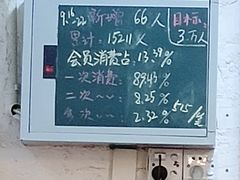 9.16-22 新增 66人
目标:
3万人
累计: 15211人
会员消费占: 13.39%
一次消费: 89.43%
二次〃〃: 8.25%
多次〃〃: 2.32%